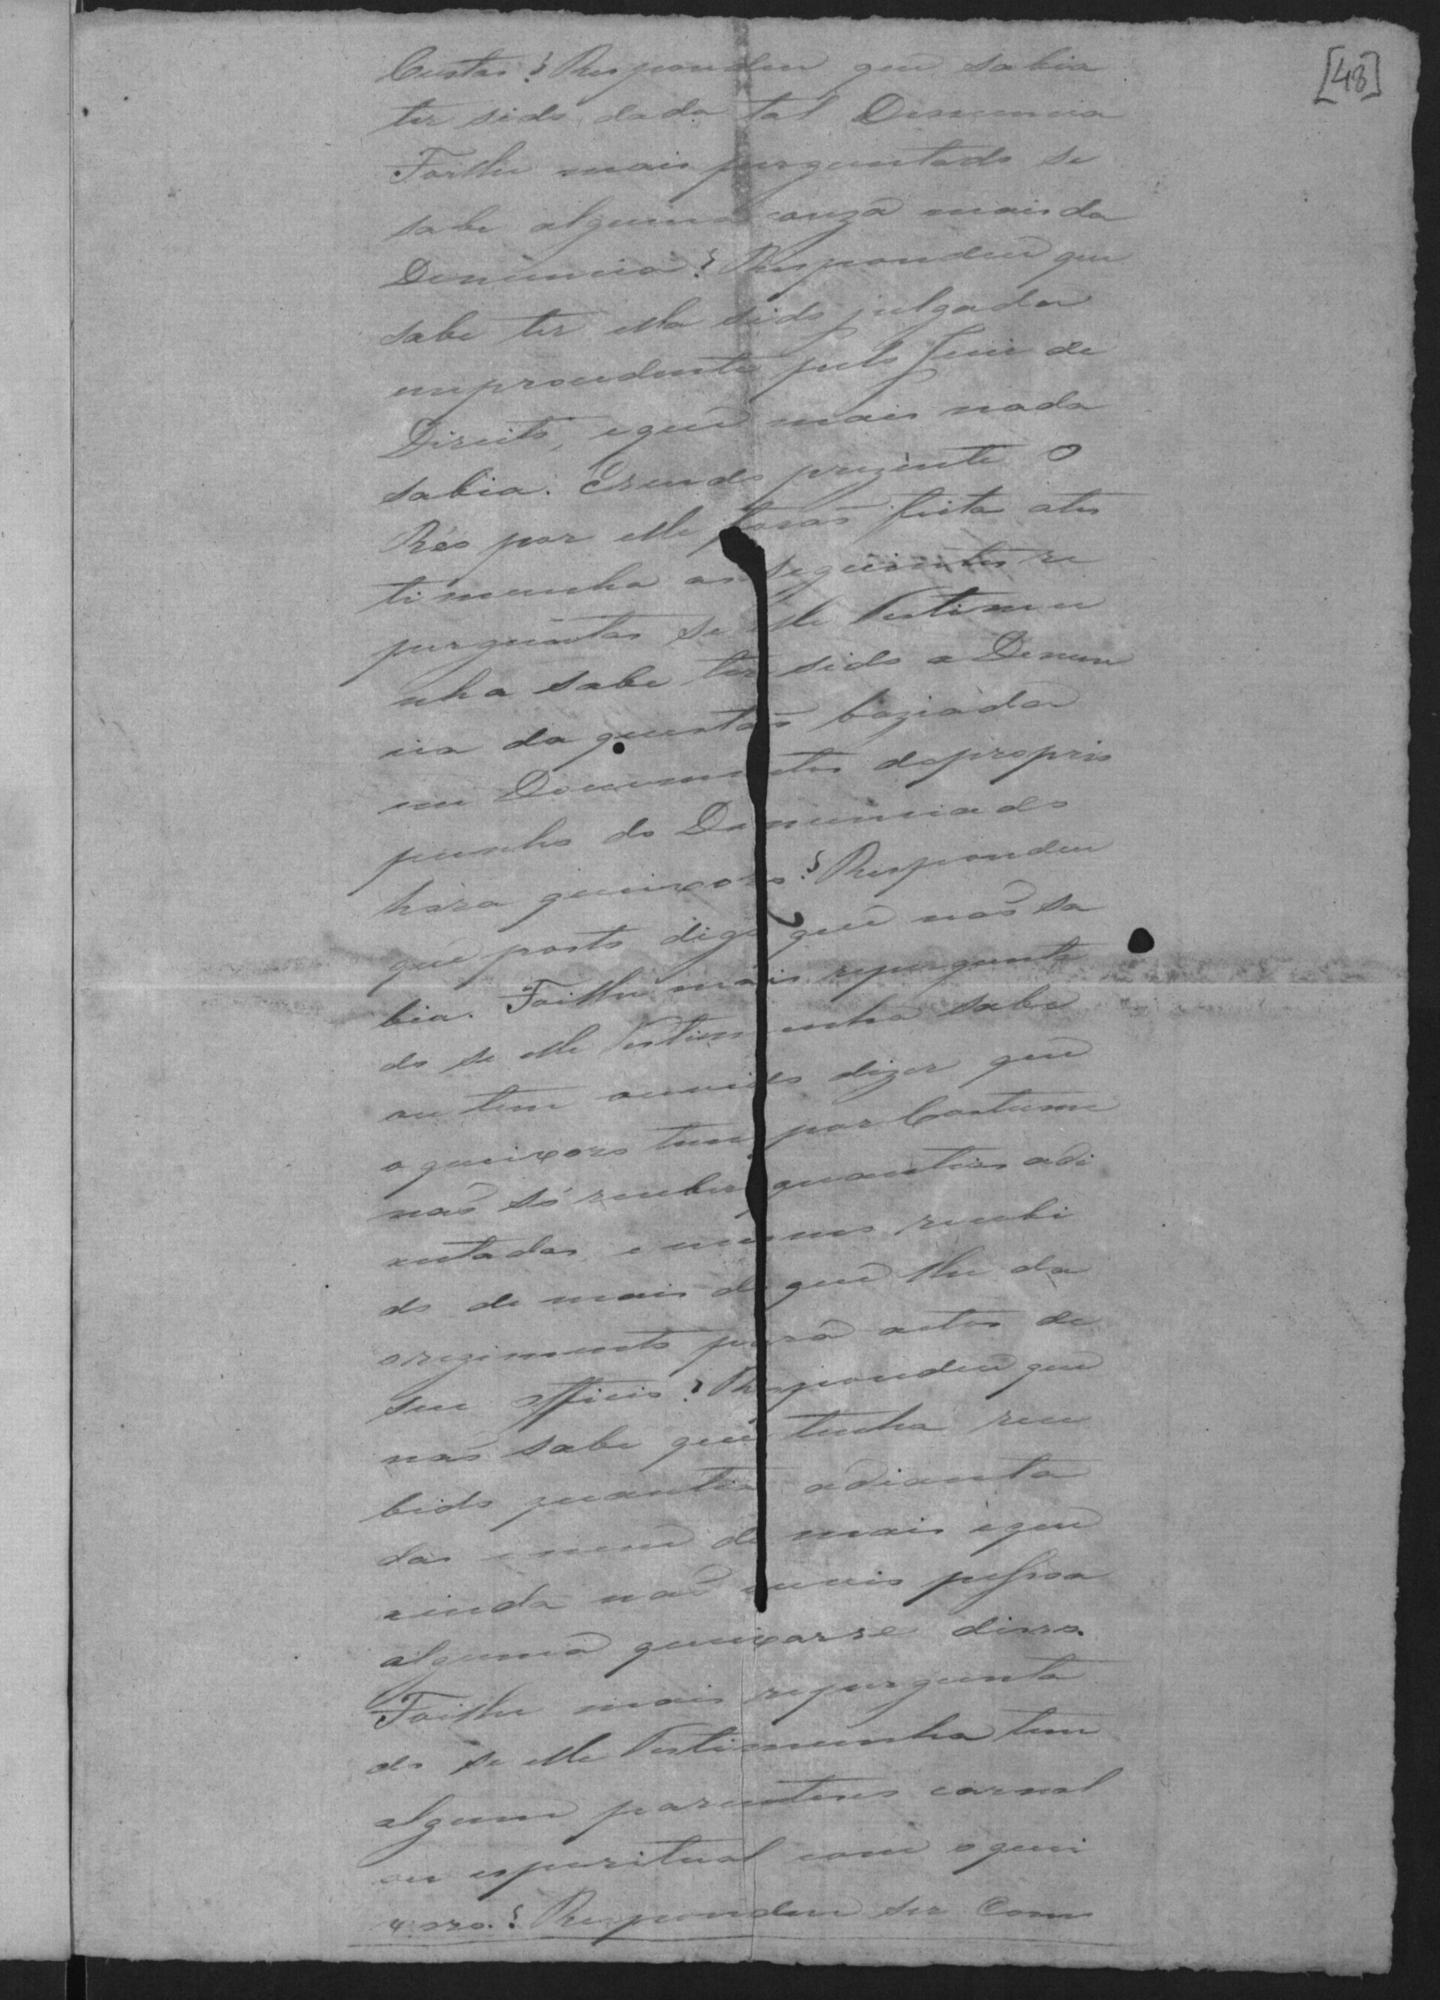 [48]
Custas? Respondeu que sabia
ter sido dada tal Denuncia
Foilhe mais perguntado se
sabe alguma couza mais da
Denuncia? Respondeu que
sabe ter ella sido julgada
improcedente pelo Juiz de
Direito, e que mais nada
sabia. E sendo prezente o
Réo por elle foraõ feita a tes
timunha as seguintes re
perguntas se elle Testimu
nha sabe ter sido a Denun
cia da questaõ baziada
em Documentos de proprio
punho do Denunciado
hora queixozo? Respondeu
que posto digo que naõ sa
bia. Foilhe mais repergunta
do se elle Testimunha sabe
ou tem ouvido dizer que
o queixozo tem por Costume
naõ só receber quantias adi
antadas, e mesmo recebi
do de mais do que lhe da
o regimento para actos de
seu Officio? Respondeu que
naõ sabe que tenha rece
bido quantias adianta
das e nem de mais e que
ainda naõ ouvio pessoa
alguma queixarse disso.
Foilhe mais repergunta
do se elle Testimunha tem
algum parentesco carnal
ou espiritual com o quei
xozo? Respondeu ser Com